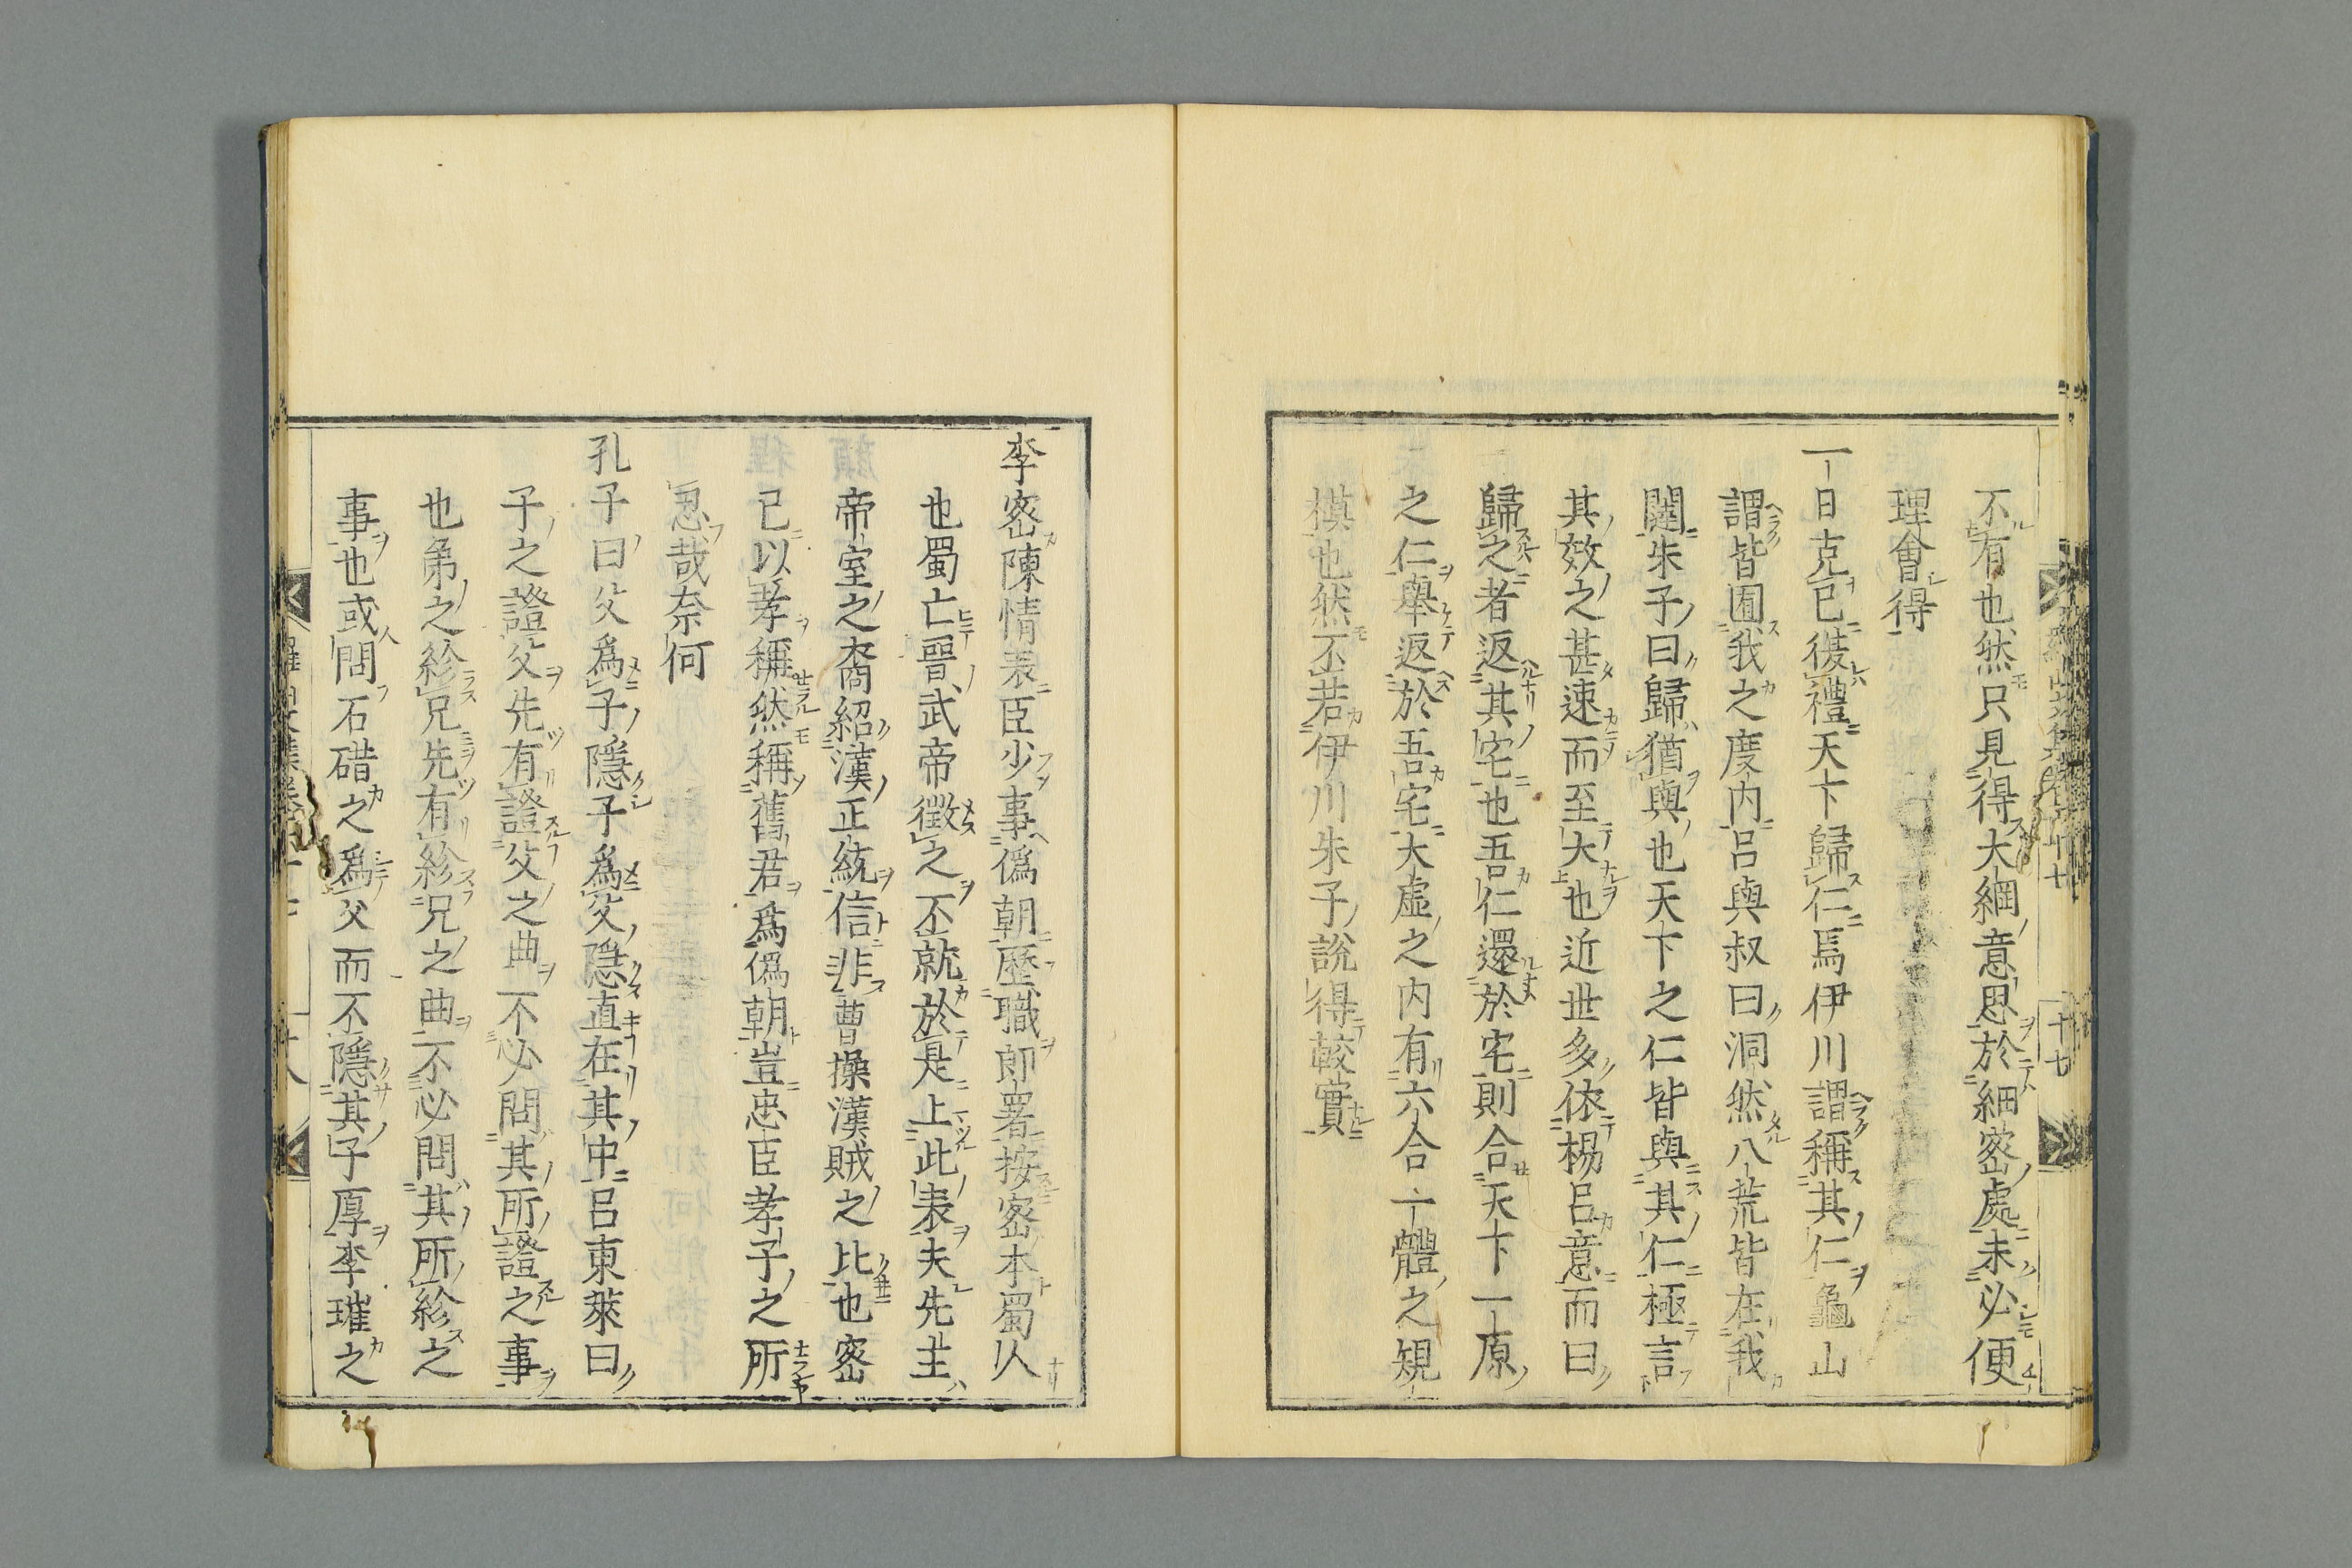 不有也然只見得大綱意思於細密處未必便
理會得
一日克己復禮天下歸仁焉伊川謂稱其仁龜山
謂皆囿我之度內呂與叔曰洞然八荒皆在我
闥朱子曰歸猶與也天下之仁皆與其仁極言
其效之甚速而至大也近世多依楊呂意而曰
歸之者返其宅也吾仁還於宅則合天下一原
之仁舉返於吾宅大虛之內有六合一體之規
模也然不若伊川朱子說得較實
李密陳情表臣少事僞朝歷職郎署按密本蜀人
也蜀亡晉武帝徵之不就於是上此表夫先主
帝室之裔紹漢正統信非曹操漢賊之比也密
已以孝稱然稱舊君爲僞朝豈忠臣孝子之所
忍哉奈何
孔子曰父爲子隱子爲父隱直在其中呂東萊曰
子之證父先有證父之曲不必問其所證之事
也弟之紾兄先有紾兄之曲不必問其所紾之
事也或問石碏之爲父而不隱其子厚李璀之